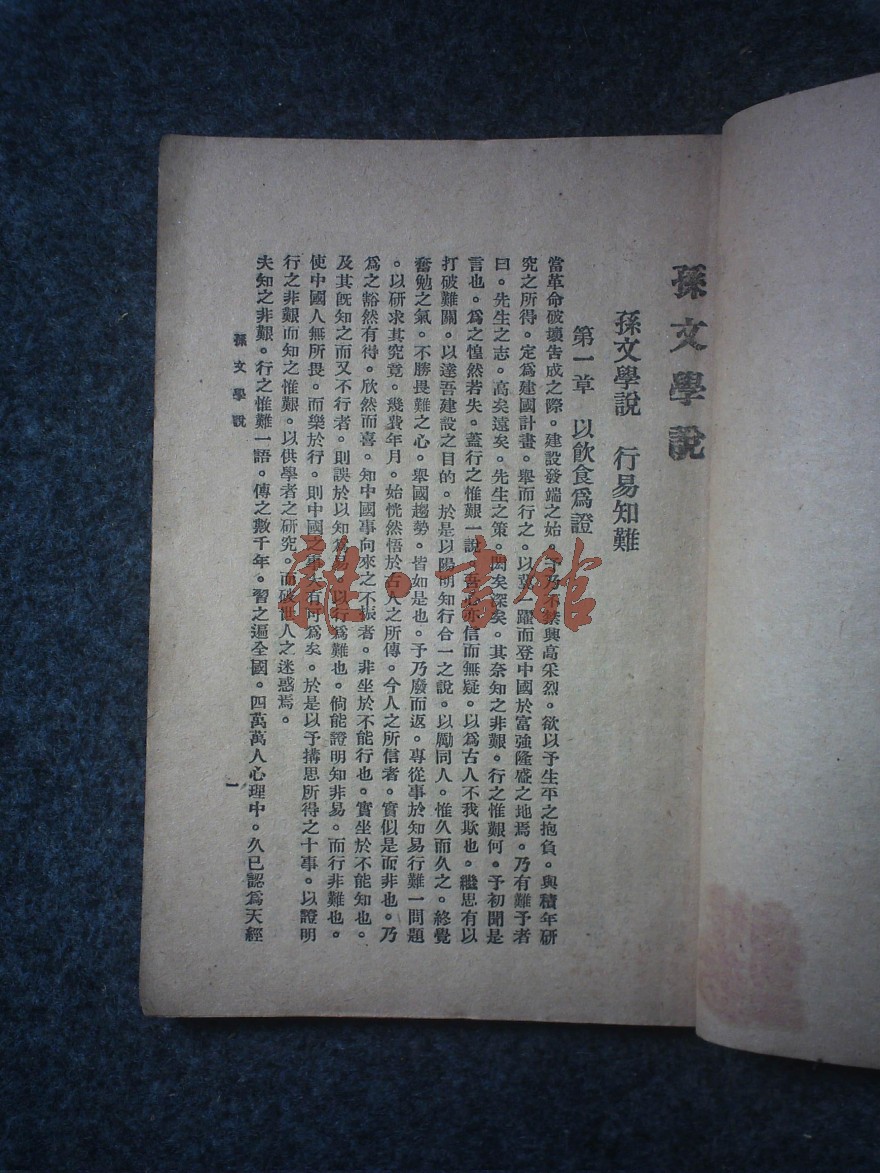 孫文學說
孫文學說　行易知難
第一章　以飲食爲證
當革命破壞告成之際。建設發端之始。予乃不禁興高采烈。欲以予生平之抱負。與積年研
究之所得。定爲建國計畫。舉而行之。以冀一躍而登中國於富強隆盛之地焉。乃有難予者
曰。先生之志。高矣遠矣。先生之策。閎矣深矣。其奈知之非艱。行之惟艱何。予初聞是
言也。爲之惶然若失。蓋行之惟艱一說。吾心亦信而無疑。以爲古人不我欺也。繼思有以
打破難關。以達吾建設之目的。於是以陽明知行合一之說。以勵同人。惟久而久之。終覺
奮勉之氣。不勝畏難之心。舉國趨勢。皆如是也。予乃廢而返。專從事於知易行難一問題
。以研求其究竟。幾費年月。始恍然悟於古人之所傳。今人之所信者。實似是而非也。乃
爲之豁然有得。欣然而喜。知中國事向來之不振者。非坐於不能行也。實坐於不能知也。
及其旣知之而又不行者。則誤於以知爲易。以行爲難也。倘能證明知非易。而行非難也。
使中國人無所畏。而樂於行。則中國之事大有可爲矣。於是以予搆思所得之十事。以證明
行之非艱而知之惟艱。以供學者之研究。而破世人之迷惑焉。
夫知之非艱。行之惟難一語。傳之數千年。習之遍全國。四萬萬人心理中。久已認爲天經
孫文學說
一
雜·書館